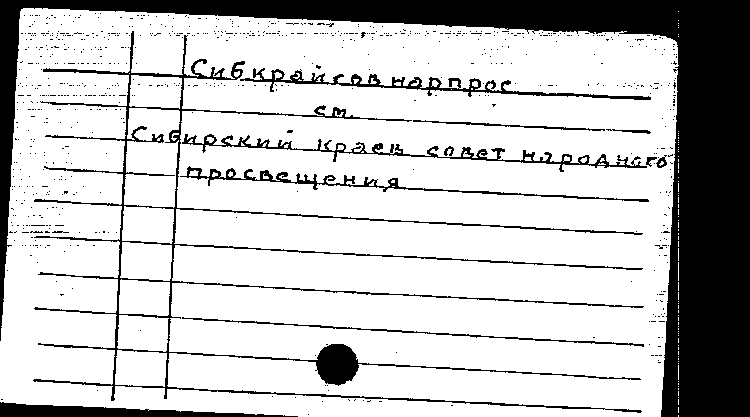 Сибкрайсовнарпрос
см.
Сибирский краев совет народного
просвещения